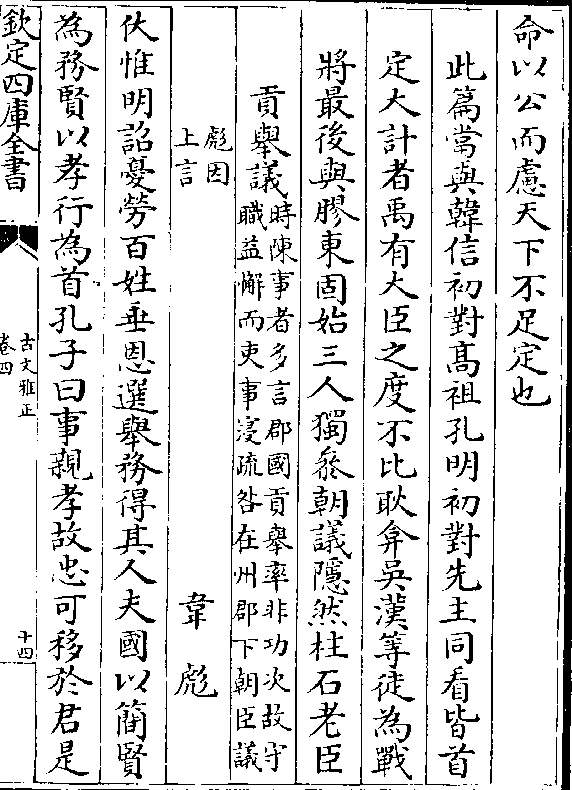 命以公而慮天下不足定也
此篇當與韓信初對髙祖孔明初對先主同看皆首
定大計者禹有大臣之度不比耿弇吳漢等徒為戰
將最後與膠東固始三人獨叅朝議隱然柱石老臣
貢舉議
時陳事者多言郡國貢舉率非功次故守
職益懈而吏事寖疏咎在州郡下朝臣議
彪因
上言
韋彪
伏惟明詔憂勞百姓垂恩選舉務得其人夫國以簡賢
為務賢以孝行為首孔子曰事親孝故忠可移於君是
欽定四庫全書
古文雅正
卷四
十四